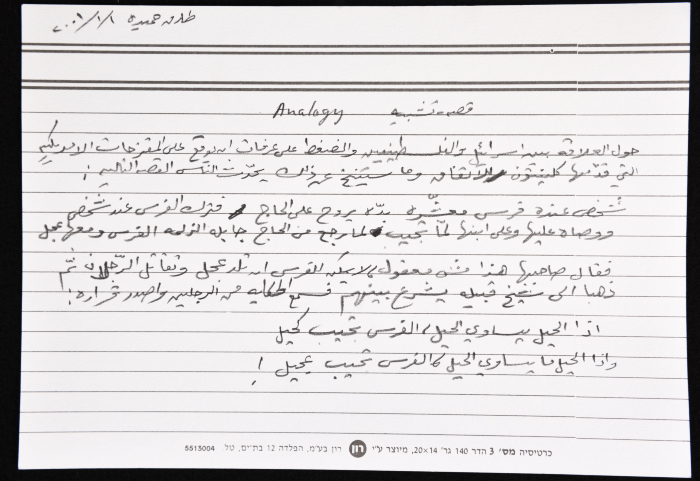 طلال حميده ٢٠٠١/١/١
قصه تشبيه Analogy
حول العلاقه بين اسرائيل والفلسطينيين والضغط على عرفات ان يوقع على المقترحات الامريكيه
التي قدّمها كلينتون للاتفاق وما سينتج عن ذلك يحدّث الناس القصه التاليه :
شخص عنده فرس معشّره بدّه يروح على الحاج فترك الفرس عند شخص
ووصاه عليها وعلى ابنها لمّا تجيب لما رجع من الحاج جابله الزلمه الفرس ومعها عجل
فقال صاحبها هذا مش معقول لا يمكن للفرس ان تلد عجل وتقاتل الرّجلان ثمّ
ذهبا الى شيخ قبيله يشرع بينهم فسمع الحكايه من الرجلين واصدر قراره :
اذا الحيل بيساوي الحيل الفرس بتجيب كحيل
واذا الحيل ما بيساوي الحيل الفرس تجيب عجيل !
כרטיסיה מס' 3 הדר 140 גר' 20×14, מיוצר ע"י רון רון בע"מ, הפלדה 12 בת-ים, טל 5513004